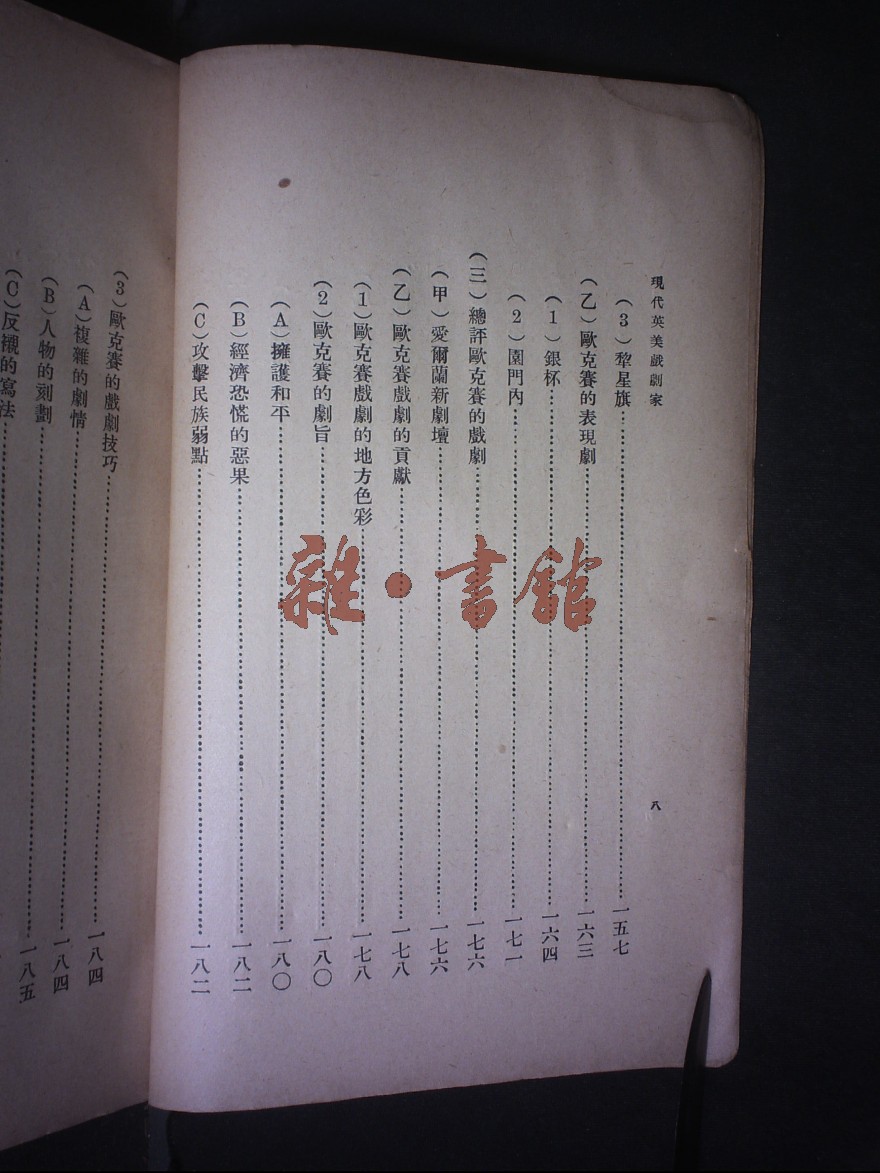 現代英美戲劇家
八
(3)犂星旗……一五七
(乙)歐克賽的表現劇……一六三
(1)銀杯……一六四
(2)園門內……一七一
(三)總評歐克賽的戲劇……一七六
(甲)愛爾蘭新劇壇……一七六
(乙)歐克賽戲劇的貢獻……一七八
(1)歐克賽戲劇的地方色彩……一七八
(2)歐克賽的劇旨……一八〇
(A)擁護和平……一八〇
(B)經濟恐慌的惡果……一八二
(C)攻擊民族弱點……一八二
(3)歐克賽的戲劇技巧……一八四
(A)複雜的劇情……一八四
(B)人物的刻劃……一八五
(C)反襯的寫法……
雜·書館